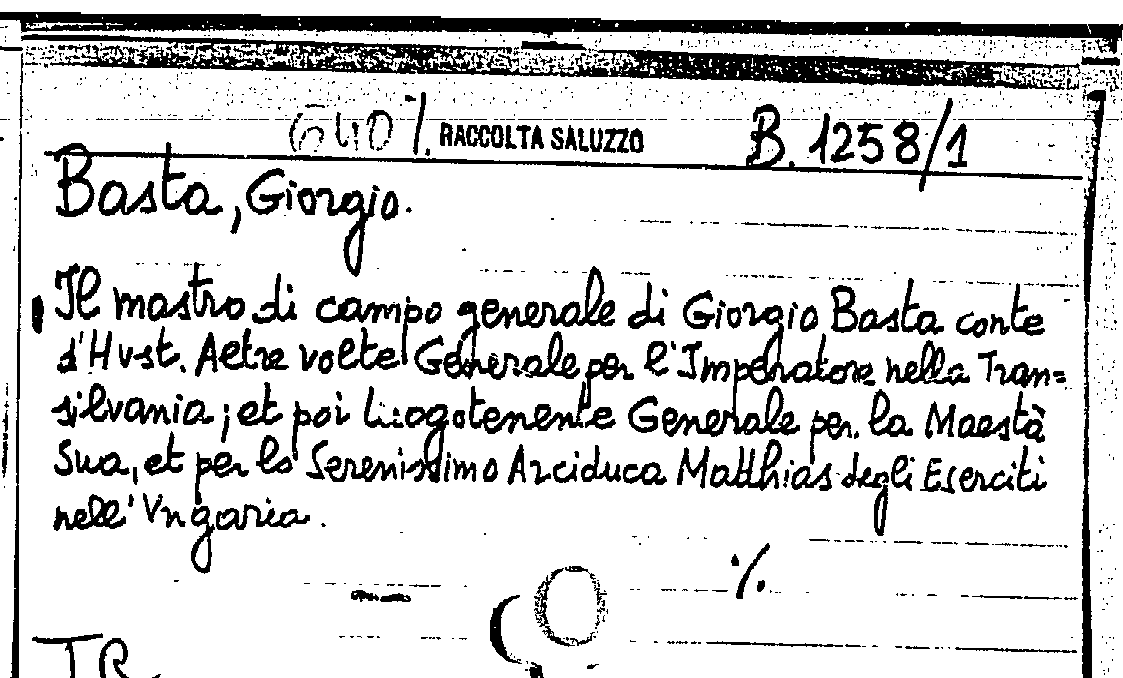 RACCOLTA SALUZZO B. 1258/1
Basta, Giorgio.
Il mastro di campo generale di Giorgio Basta conte
d'Hvst. Altre volte Generale per l'Imperatore nella Tran=
silvania; et poi Luogotenente Generale per la Maestà
Sua, et per lo Serenissimo Arciduca Matthias degli Eserciti
nell'Vngaria.
./.